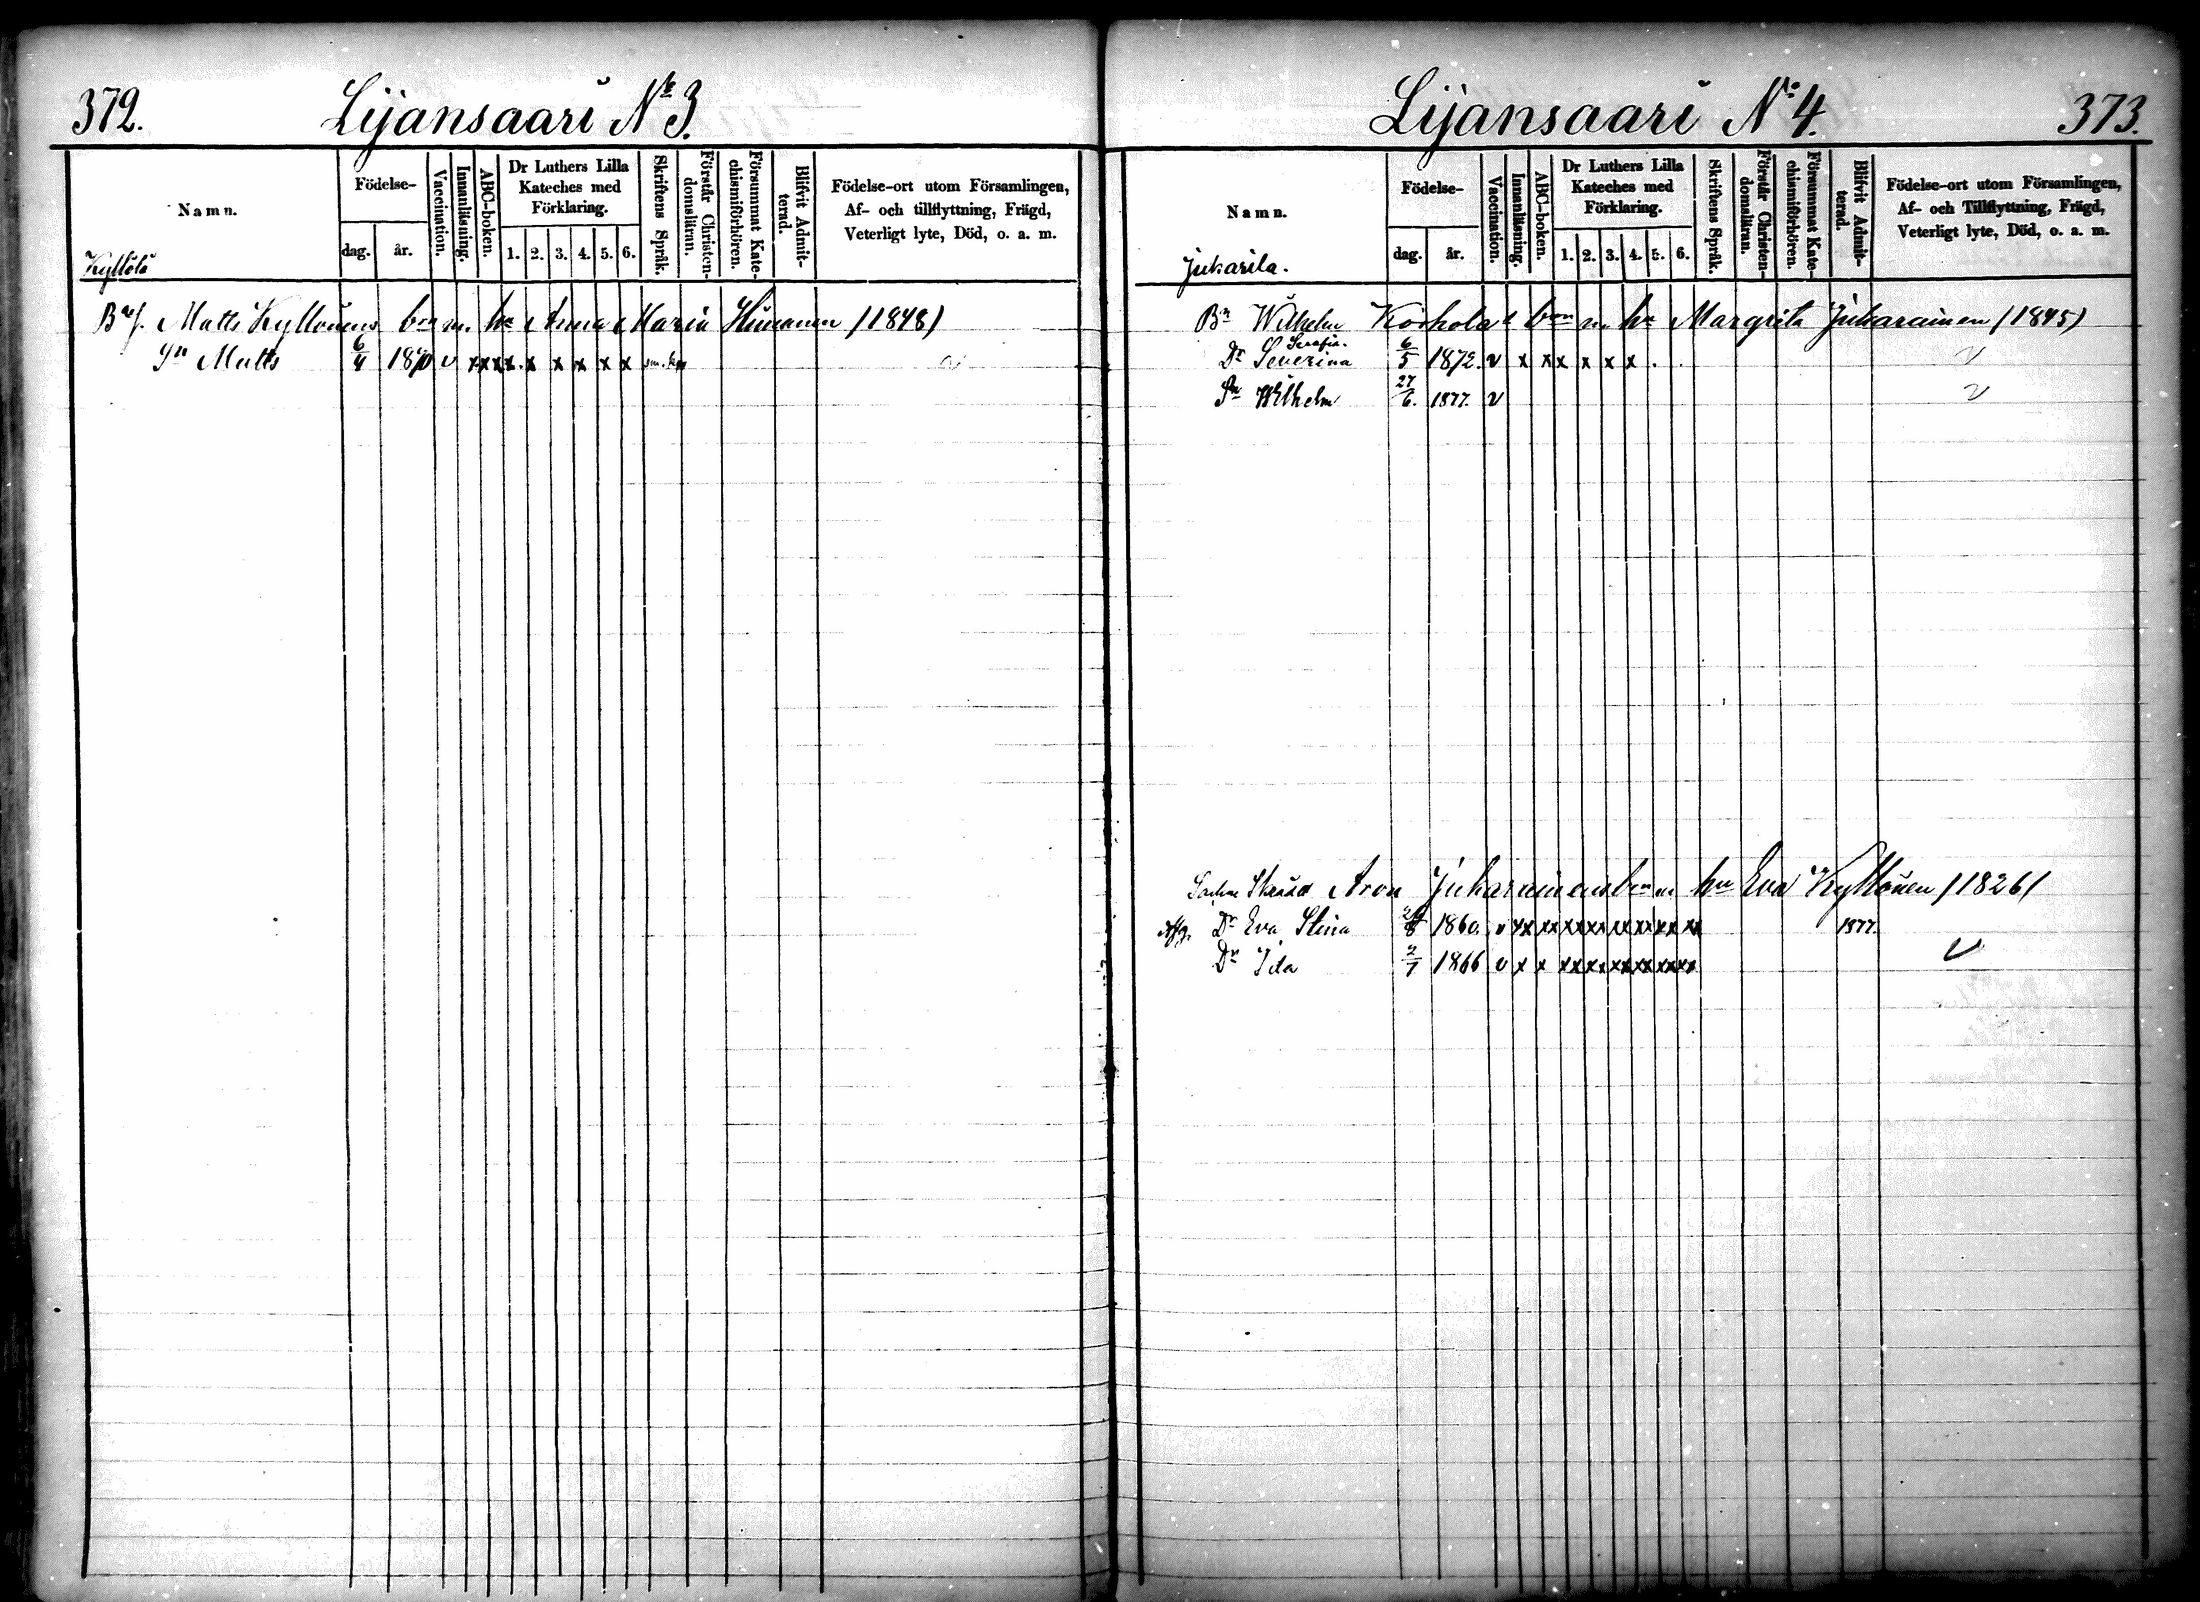 372. Lijansaari No 3.
Namn.
Födelse-
dag. år.
Vaccination.
Innanläsning.
ABC-boken.
Dr Luthers Lilla
Kateches med
Förklaring.
1. 2. 3. 4. 5. 6.
Skriftens Språk.
Förstår Christen-
domsläran.
Försummat Kate-
chismiförhören.
Blifvit Admit-
terad.
Födelse-ort utom Församlingen,
Af- och tillflyttning, Frägd,
Veterligt lyte, Död, o. a. m.
Kyllölä
Matts Kyllönens bn m. hu Anna Maria (1848)
Sn Matts 6/4 1870 v x x x x x x x x x x
Lijansaari No 4. 373.
Namn.
Födelse-
dag. år.
Vaccination.
Innanläsning.
ABC-boken.
Dr Luthers Lilla
Kateches med
Förklaring.
1. 2. 3. 4. 5. 6.
Skriftens Språk.
Förstår Christen-
domsläran.
Försummat Kate-
chismiförhören.
Blifvit Admit-
terad.
Födelse-ort utom Församlingen,
Af- och Tillflyttning, Frägd,
Veterligt lyte, Död, o. a. m.
Jukarila.
Bn Wilhelm m hu Margrita Jukarainen (1845)
Serafia.
Dr Severina 6/5 1872. v x x x x x x v
Sn Wilhelm 27/6. 1877. v v
Aron Jukarainens bn m hu Eva Kyllönen (1826)
Afg. Dr Eva Stina 1860. v xx xx xx xx xx xx xx xx 1877.
Dr Ida 2/7 1866 v x x xx xx xx xx xx xx v